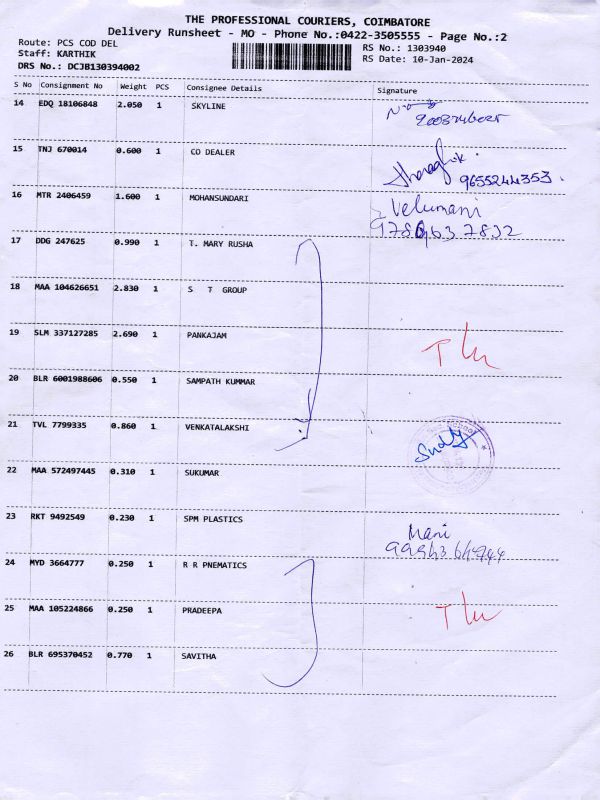 THE PROFESSIONAL COURIERS, COIMBATORE
Delivery Runsheet - MO - Phone No.:0422-3505555 - Page No.:2
Route: PCS COD DEL
RS No.: 1303940
Staff: KARTHIK
RS Date: 10-Jan-2024
DRS No.: DCJB130394002
S No Consignment No Weight PCS Consignee Details Signature
14 EDQ 18106848 2.050 1 SKYLINE
15 TNJ 670014 0.600 1 CO DEALER
9655244353.
16 MTR 2406459 1.600 1 MOHANSUNDARI
Velumani
17 DDG 247625 0.990 1 T. MARY RUSHA
18 MAA 104626651 2.830 1 S T GROUP
19 SLM 337127285 2.690 1 PANKAJAM
20 BLR 6001988606 0.550 1 SAMPATH KUMMAR
21 TVL 7799335 0.860 1 VENKATALAKSHI
22 MAA 572497445 0.310 1 SUKUMAR
23 RKT 9492549 0.230 1 SPM PLASTICS
Mani
24 MYD 3664777 0.250 1 R R PNEMATICS
25 MAA 105224866 0.250 1 PRADEEPA
26 BLR 695370452 0.770 1 SAVITHA